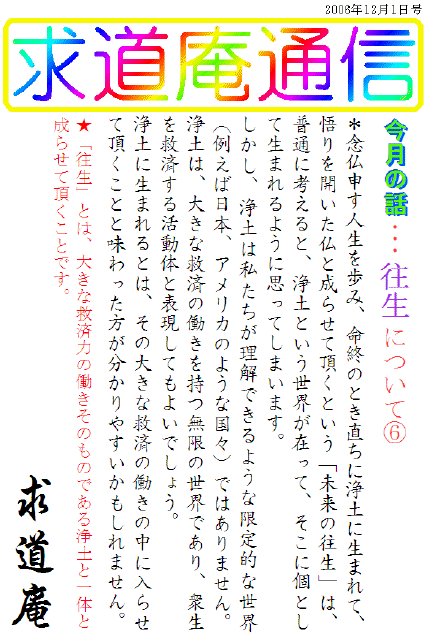 2006年12月1日号
求道庵通信
今月の話…往生について⑥
＊念仏申す人生を歩み、命終のとき直ちに浄土に生まれて、
悟りを開いた仏と成らせて頂くという「未来の往生」は、
普通に考えると、浄土という世界が在って、そこに個とし
て生まれるように思ってしまいます。
しかし、浄土は私たちが理解できるような限定的な世界
（例えば日本、アメリカのような国々）ではありません。
浄土は、大きな救済の働きを持つ無限の世界であり、衆生
を救済する活動体と表現してもよいでしょう。
浄土に生まれるとは、その大きな救済の働きの中に入らせ
て頂くことと味わった方が分かりやすいかもしれません。
★「往生」とは、大きな救済力の働きそのものである浄土と一体と
成らせて頂くことです。
求道庵